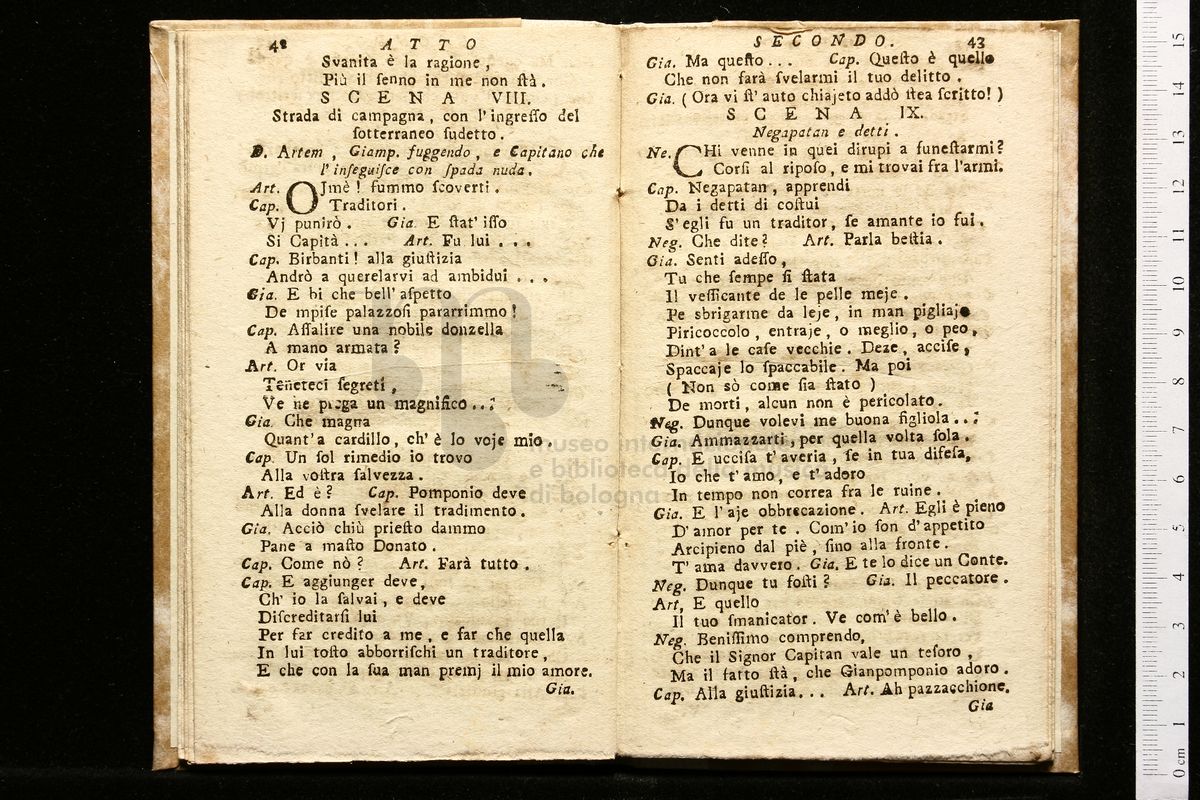 42 ATTO
Svanita è la ragione,
Più il ſenno in me non ſtà.
SCENA VIII.
Strada di campagna, con l'ingreſſo del
ſotterraneo ſudetto.
D. Artem, Giamp. fuggendo, e Capitano che
l'inſeguiſce con ſpada nuda.
Art. OJmè! fummo ſcoverti.
Cap. Traditori.
Vj punirò. Gia. E ſtat' iſſo
Si Capità... Art. Fu lui...
Cap. Birbanti! alla giuſtizia
Andrò a querelarvi ad ambidui...
Gia. E bi che bell' aſpetto
De mpiſe palazzoſi pararrimmo!
Cap. Aſſalire una nobile donzella
A mano armata?
Art. Or via
Teneteci ſegreti,
Ve ne prega un magnifico...
Gia. Che magna
Quant'a cardillo, ch' è lo voje mio.
Cap. Un ſol rimedio io trovo
Alla voſtra ſalvezza.
Art. Ed è? Cap. Pomponio deve
Alla donna ſvelare il tradimento.
Gia. Acciò chiù prieſto dammo
Pane a maſto Donato.
Cap. Come nò? Art. Farà tutto.
Cap. E aggiunger deve,
Ch' io la ſalvai, e deve
Diſcreditarſi lui
Per far credito a me, e far che quella
In lui toſto abborriſchi un traditore,
E che con la ſua man premj il mio amore.
Gia.
SECONDO. 43
Gia. Ma queſto... Cap. Queſto è quello
Che non farà ſvelarmi il tuo delitto.
Gia. (Ora vi ſt' auto chiajeto addò ſtea ſcritto!)
SCENA IX.
Negapatan e detti.
Ne. CHi venne in quei dirupi a funeſtarmi?
Corſi al ripoſo, e mi trovai fra l'armi.
Cap. Negapatan, apprendi
Da i detti di coſtui
S'egli fu un traditor, ſe amante io fui.
Neg. Che dite? Art. Parla beſtia.
Gia. Senti adeſſo,
Tu che ſempe ſi ſtata
Il veſſicante de le pelle meje.
Pe sbrigarme da leje, in man pigliaje
Piricoccolo, entraje, o meglio, o peo,
Dint'a le caſe vecchie. Deze, acciſe,
Spaccaje lo ſpaccabile. Ma poi
(Non sò come ſia ſtato)
De morti, alcun non è pericolato.
Neg. Dunque volevi me buona figliola...
Gia. Ammazzarti, per quella volta ſola.
Cap. E ucciſa t' averia, ſe in tua difeſa,
Io che t' amo, e t' adoro
In tempo non correa fra le ruine.
Gia. E l'aje obbrecazione. Art. Egli è pieno
D'amor per te. Com' io ſon d'appetito
Arcipieno dal piè, ſino alla fronte.
T' ama davvero. Gia. E te lo dice un Conte.
Neg. Dunque tu foſti? Gia. Il peccatore.
Art, E quello
Il tuo ſmanicator. Ve com' è bello.
Neg. Beniſſimo comprendo,
Che il Signor Capitan vale un teſoro,
Ma il fatto ſtà, che Gianpomponio adoro.
Cap. Alla giuſtizia... Art. Ah pazzacchione.
Gia
museo
e biblioteca della musica
di bologna
0 cm 1 2 3 4 5 6 7 8 9 10 11 12 13 14 15